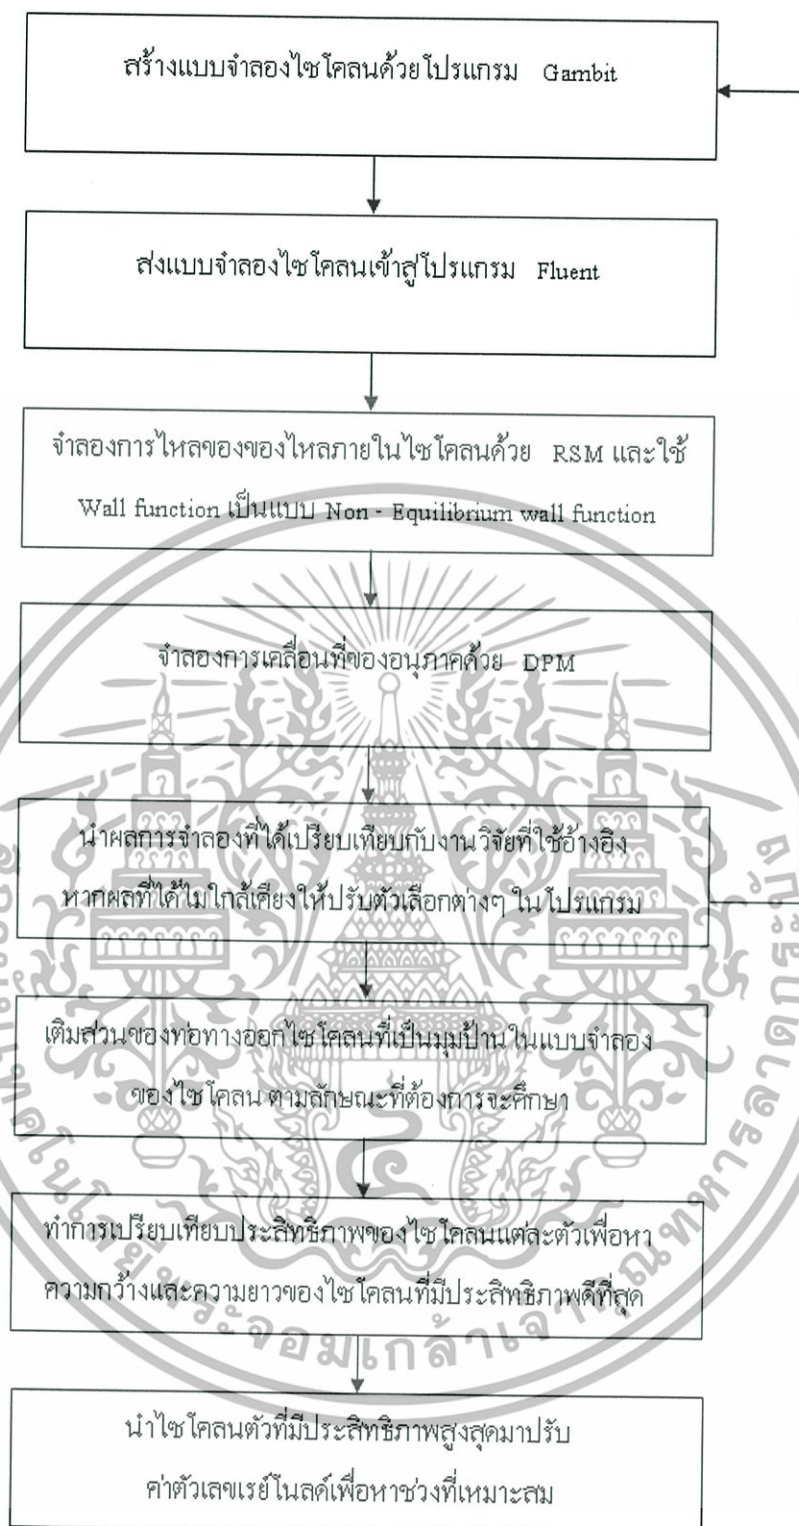 สร้างแบบจำลองไซโคลนด้วยโปรแกรม Gambit
ส่งแบบจำลองไซโคลนเข้าสู่โปรแกรม Fluent
จำลองการไหลของของไหลภายในไซโคลนด้วย RSM และใช้
Wall function เป็นแบบ Non - Equilibrium wall function
จำลองการเคลื่อนที่ของอนุภาคด้วย DPM
นำผลการจำลองที่ได้เปรียบเทียบกับงานวิจัยที่ใช้อ้างอิง
หากผลที่ได้ไม่ใกล้เคียงให้ปรับตัวเลือกต่างๆ ในโปรแกรม
เติมส่วนของท่อทางออกไซโคลนที่เป็นมุมป้านในแบบจำลอง
ของไซโคลน ตามลักษณะที่ต้องการจะศึกษา
ทำการเปรียบเทียบประสิทธิภาพของไซโคลนแต่ละตัวเพื่อหา
ความกว้างและความยาวของไซโคลนที่มีประสิทธิภาพดีที่สุด
นำไซโคลนตัวที่มีประสิทธิภาพสูงสุดมาปรับ
ค่าตัวเลขเรย์โนลด์เพื่อหาช่วงที่เหมาะสม